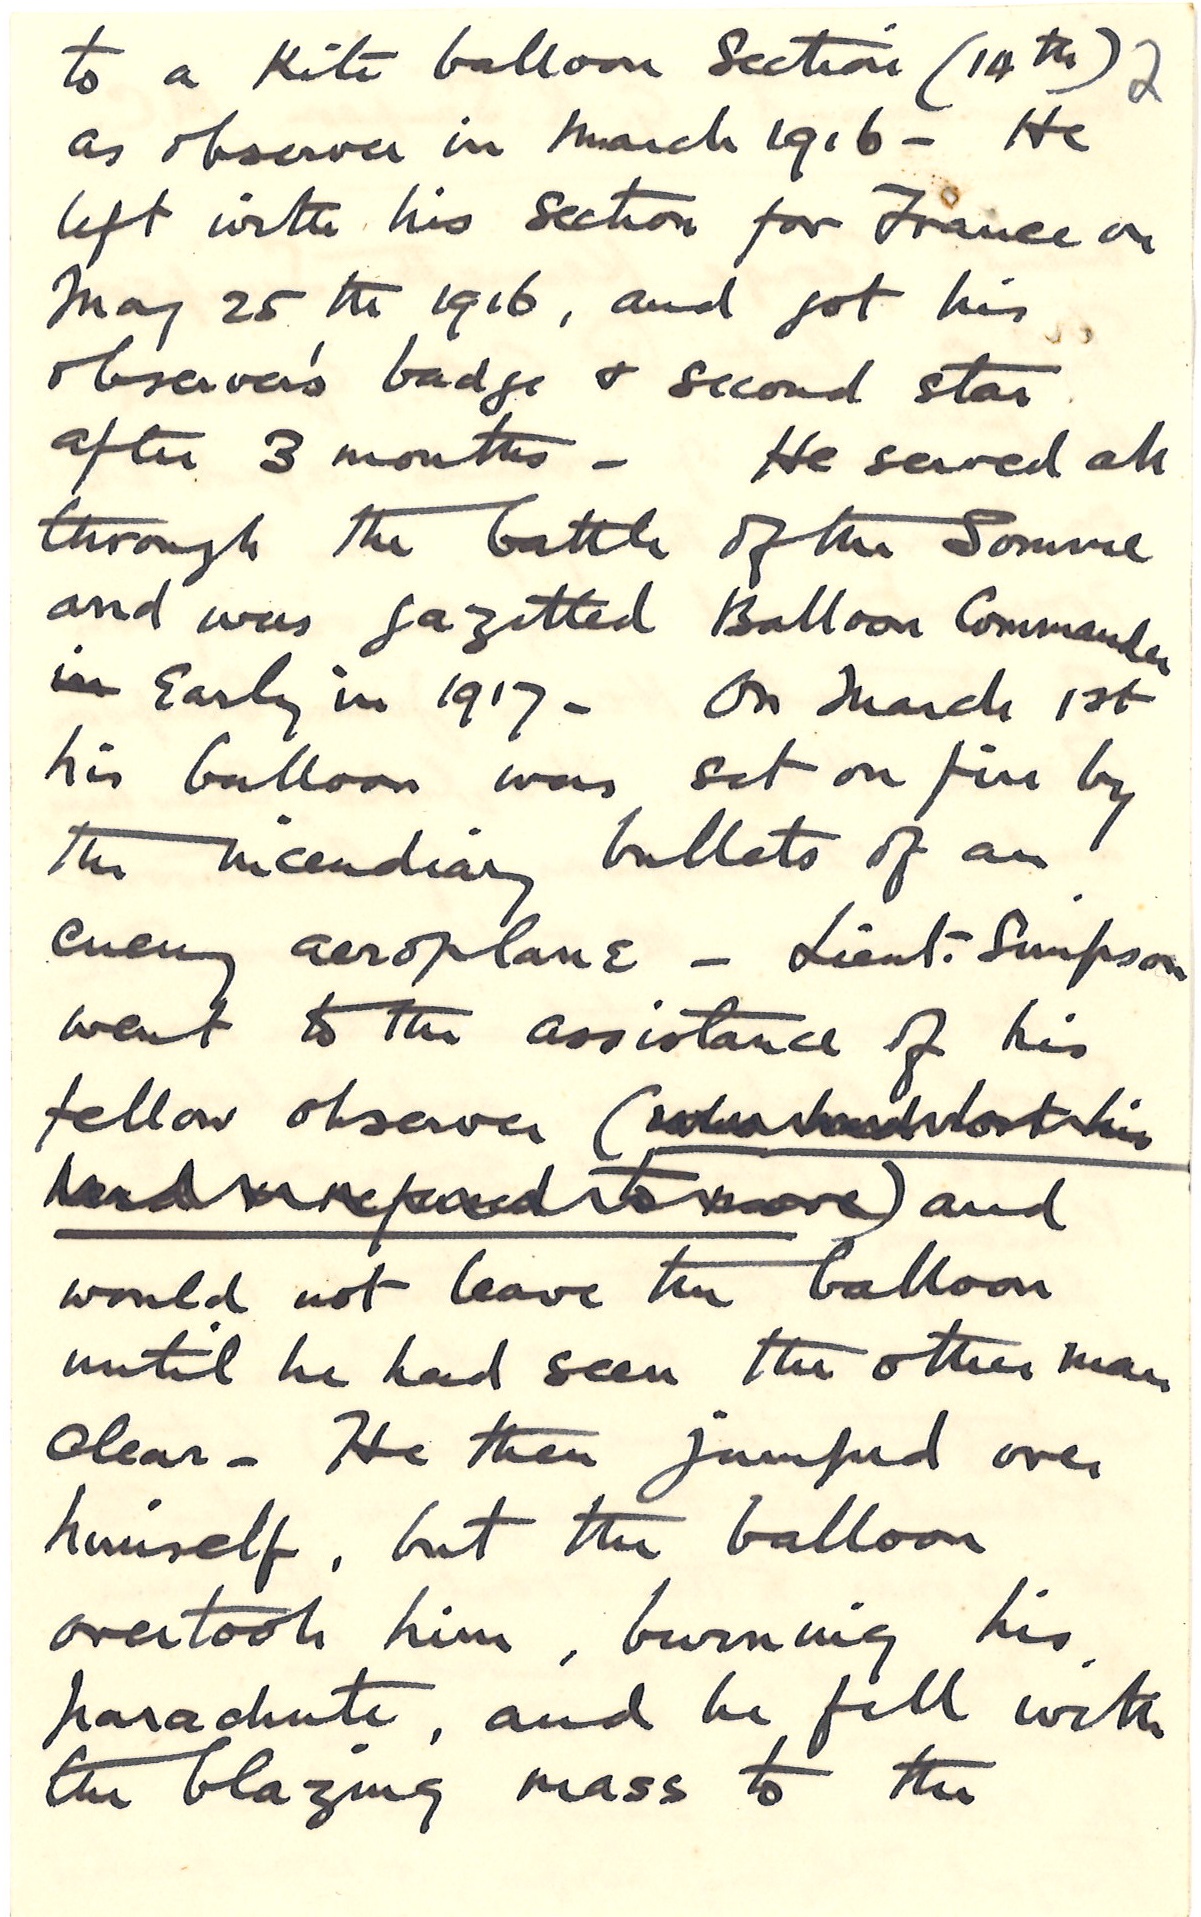 to a Kite balloon Section (14th) 2
as observer in March 1916 - He
left with his section for France on
May 25th 1916, and got his
observer's badge & second star
after 3 months - He served all
through the battle of the Somme
and was gazetted Balloon Commander
in Early in 1917 - On March 1st
his balloon was set on fire by
the incendiary bullets of an
enemy aeroplane - Lieut. Simpson
went to the assistance of his
fellow observer (who had lost his
head & refused to move) and
would not leave the balloon
until he had seen the other man
clear - He then jumped over
himself, but the balloon
overtook him, burning his
parachute, and he fell with
the blazing mass to the